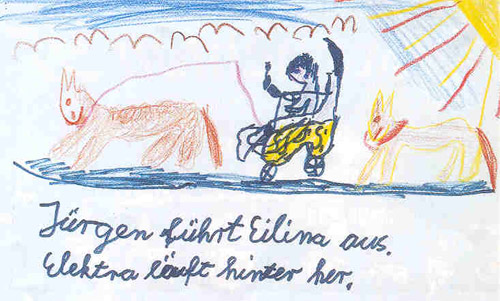 Jürgen führt Eilina aus.
Elektra läuft hinter her.